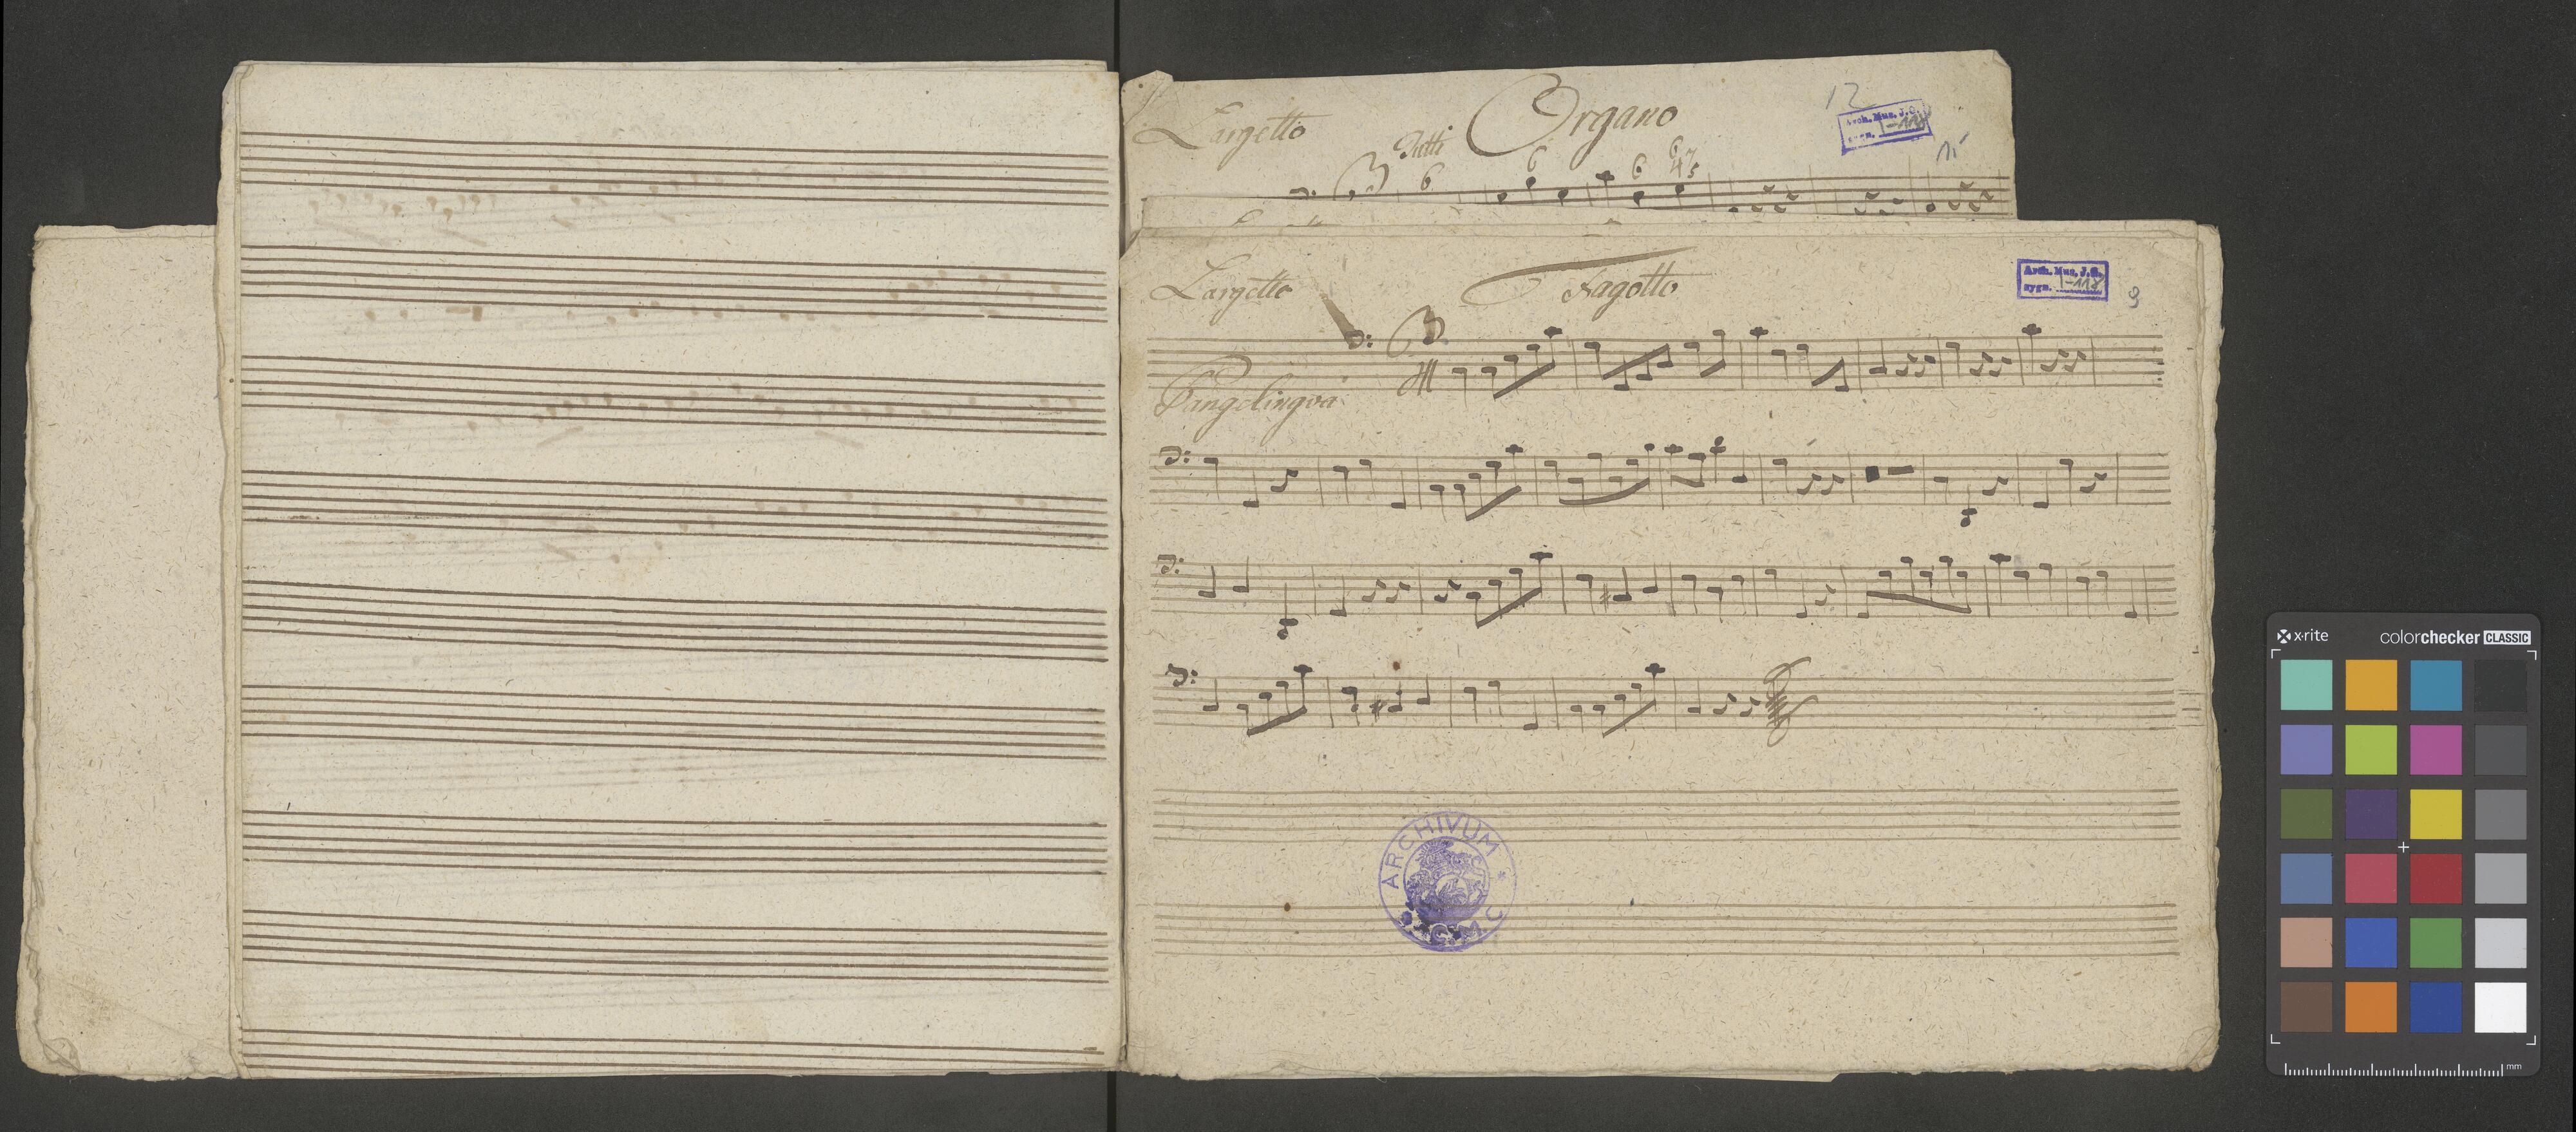 12
Organo
Largetto
Tutti
Arch. Muz. J.G.
sygn. I-118
6 6 6 6
Largetto Fagotto
Arch. Muz. J.G.
sygn. I-118
9
Pangelingva
ARCHIVUM
x-rite colorchecker CLASSIC
mm